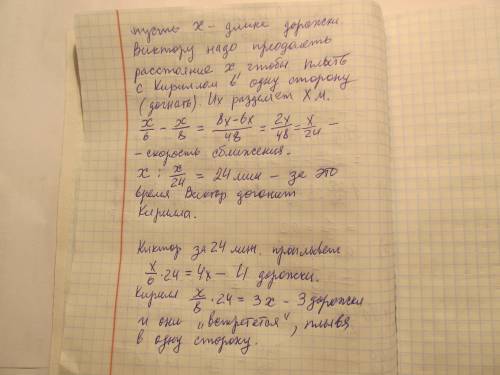 пусть x – длина дорожки
Виктору надо преодолеть
расстояние x чтобы плыть
с Кириллом в одну сторону
(догнать). Их разделяет X м.
x/6 – x/8 = 8x-6x/48 = 2x/48 = x/24 –
– скорость сближения.
x : x/24 = 24 мин – за это
время Виктор догонит
Кирилла.
Виктор за 24 мин. проплывет
x/6 · 24 = 4x – 4 дорожки.
Кирилл x/8 · 24 = 3x – 3 дорожки
и они „встретятся", плывя
в одну сторону.